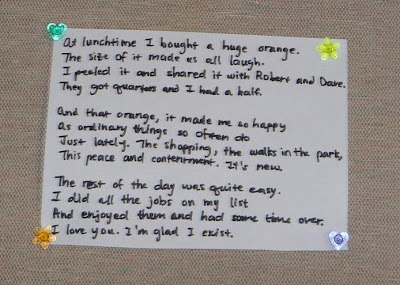 At lunchtime I bought a huge orange.
The size of it made us all laugh.
I peeled it and shared it with Robert and Dave.
They got quarters and I had a half.
And that orange, it made me so happy
As ordinary things so often do
Just lately. The shopping, the walks in the park,
This peace and contentment. It's new.
The rest of the day was quite easy.
I did all the jobs on my list
And enjoyed them and had some time over.
I love you. I'm glad I exist.